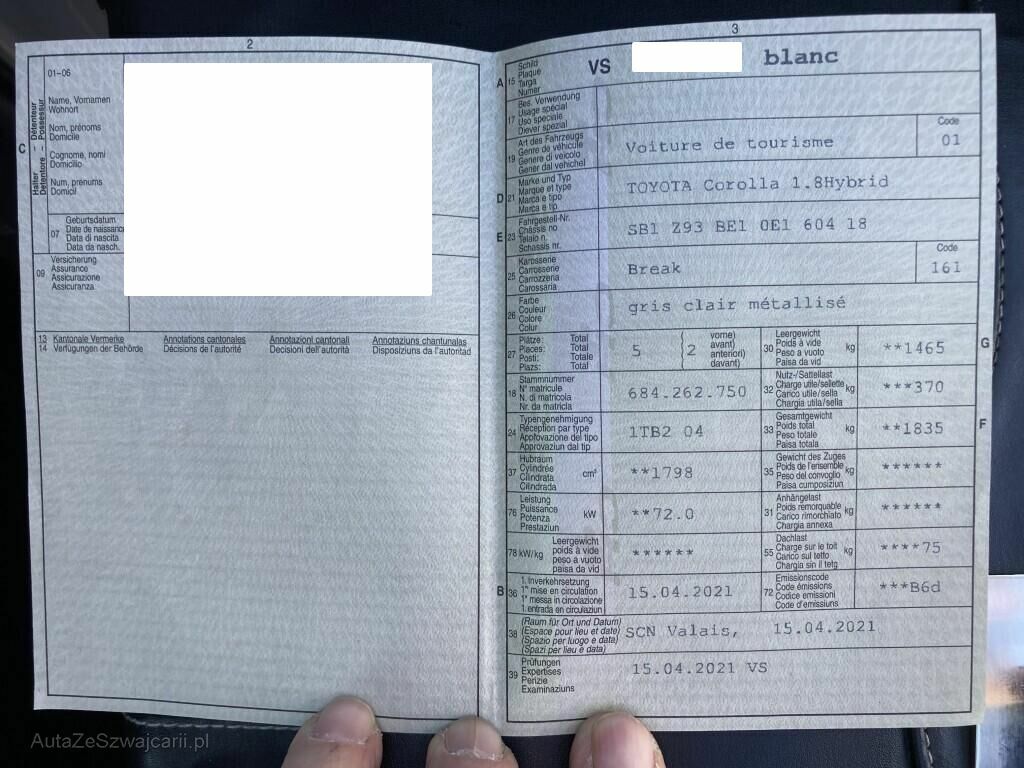 2
01–06
C
Halter – Détenteur
Detentore – Possessur
Name, Vornamen
Wohnort
Nom, prénoms
Domicile
Cognome, nomi
Domicilio
Num, prenums
Domicil
07
Geburtsdatum
Date de naissance
Data di nascita
Data da nasch.
09
Versicherung
Assurance
Assicurazione
Assicuranza
13 Kantonale Vermerke Annotations cantonales Annotazioni cantonali Annotaziuns chantunalas
14 Verfügungen der Behörde Décisions de l'autorité Decisioni dell'autorità Disposiziuns da l'autoritad
3
A 15
Schild
Plaque
Targa
Numer
VS blanc
17
Bes. Verwendung
Usage spécial
Uso speciale
Diever spezial
19
Art des Fahrzeugs
Genre de véhicule
Genere di veicolo
Gener dal vehichel
Voiture de tourisme
Code
01
D 21
Marke und Typ
Marque et type
Marca e tipo
Marca e tip
TOYOTA Corolla 1.8Hybrid
E 23
Fahrgestell-Nr.
Châssis no
Telaio n.
Schassis nr.
SB1 Z93 BE1 0E1 604 18
25
Karosserie
Carrosserie
Carrozzeria
Carossaria
Break
Code
161
26
Farbe
Couleur
Colore
Colur
gris clair métallisé
27
Plätze: Total
Places: Total
Posti: Totale
Plazs: Total
5 ( 2
vorne)
avant)
anteriori)
davant)
30
Leergewicht
Poids à vide
Peso a vuoto
Paisa da vid
kg
**1465
G
18
Stammnummer
N° matricule
N. di matricola
Nr. da matricla
684.262.750
32
Nutz-/Sattellast
Charge utile/sellette
Carico utile/sella
Chargia utila/sella
kg
***370
24
Typengenehmigung
Réception par type
Approvazione del tipo
Approvaziun dal tip
1TB2 04
33
Gesamtgewicht
Poids total
Peso totale
Paisa totala
kg
**1835
F
37
Hubraum
Cylindrée
Cilindrata
Cilindrada
cm³
**1798
35
Gewicht des Zuges
Poids de l'ensemble
Peso del convoglio
Paisa cumposiziun
kg
******
76
Leistung
Puissance
Potenza
Prestaziun
kW
**72.0
31
Anhängelast
Poids remorquable
Carico rimorchiato
Chargia annexa
kg
******
78 kW/kg
Leergewicht
poids à vide
peso a vuoto
paisa da vid
******
55
Dachlast
Charge sur le toit
Carico sul tetto
Chargia sin il tetg
kg
****75
B 36
1. Inverkehrsetzung
1re mise en circulation
1a messa in circolazione
1. entrada en circulaziun
15.04.2021
72
Emissionscode
Code émissions
Codice emissioni
Code d'emissiuns
***B6d
38
(Raum für Ort und Datum)
(Espace pour lieu et date)
(Spazio per luogo e data)
(Spazi per lieu e data)
SCN Valais, 15.04.2021
39
Prüfungen
Expertises
Perizie
Examinaziuns
15.04.2021 VS
AutaZeSzwajcarii.pl